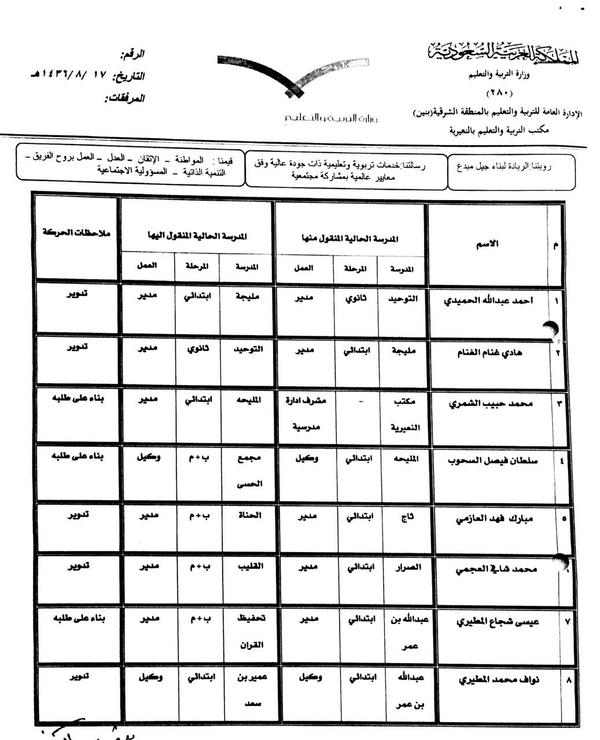 المملكة العربية السعودية
وزارة التربية والتعليم
(٢٨٠)
الإدارة العامة للتربية والتعليم بالمنطقة الشرقية(بنين)
مكتب التربية والتعليم بالنعيرية
وزارة التربية والتعليم
الرقم:
التاريخ: ١٧ /٨ /١٤٣٦هـ
المرفقات:
رويتنا:الريادة لبناء جيل مبدع
رسالتنا:خدمات تربوية وتعليمية ذات جودة عالية وفق
معايير عالمية بمشاركة مجتمعية
قيمنا : المواطنة – الإتقان – العدل – العمل بروح الفريق –
التنمية الذاتية – المسؤولية الاجتماعية
م الاسم المدرسة الحالية المنقول منها المدرسة الحالية المنقول اليها ملاحظات الحركة
المدرسة المرحلة العمل المدرسة المرحلة العمل
١ أحمد عبدالله الحميدي التوحيد ثانوي مدير مليجة ابتدائي مدير تدوير
٢ هادي غنام الغنام مليجة ابتدائي مدير التوحيد ثانوي مدير تدوير
٣ محمد حبيب الشمري مكتب النعيرية - مشرف ادارة مدرسية المليحه ابتدائي مدير بناء على طلبه
٤ سلطان فيصل السحوب المليحه ابتدائي وكيل مجمع الحسى ب+م وكيل بناء على طلبه
٥ مبارك فهد العازمي ثاج ابتدائي مدير الحناة ب+م مدير تدوير
محمد شافي العجمي الصرار ابتدائي مدير القليب ب+م مدير تدوير
٧ عيسى شجاع المطيري عبدالله بن عمر ابتدائي مدير تحفيظ القران ب+م مدير بناء على طلبه
٨ نواف محمد المطيري عبدالله بن عمر ابتدائي وكيل عمير بن سعد ابتدائي وكيل تدوير